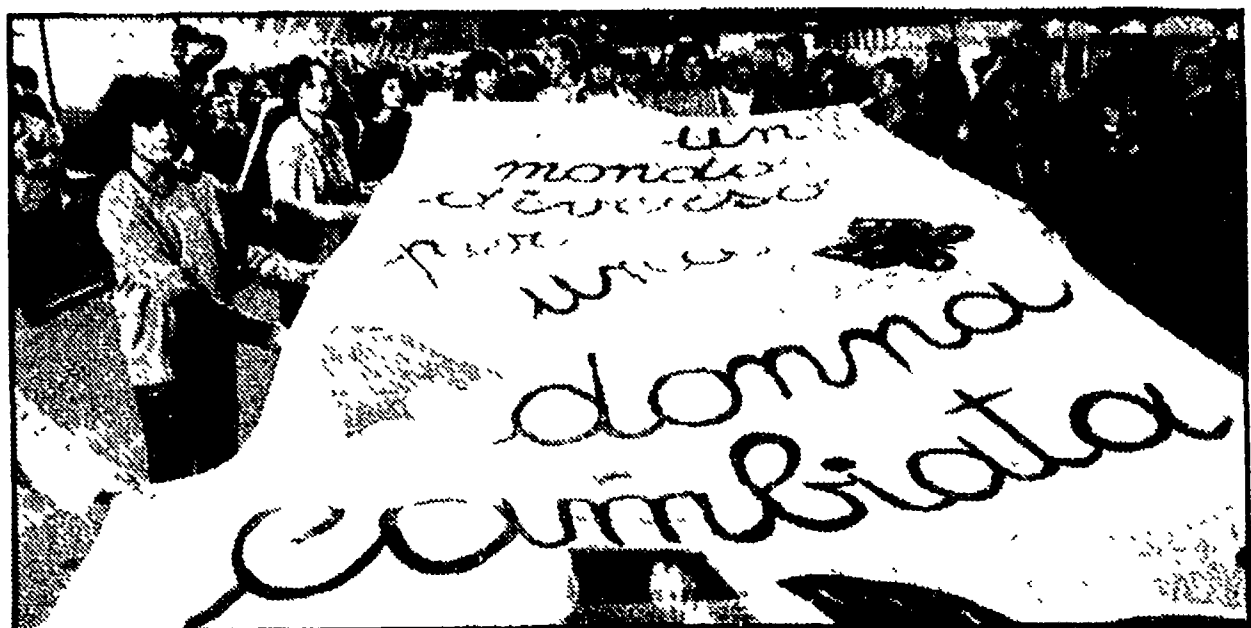 un
mondo
diverso
per
una
donna
cambiata